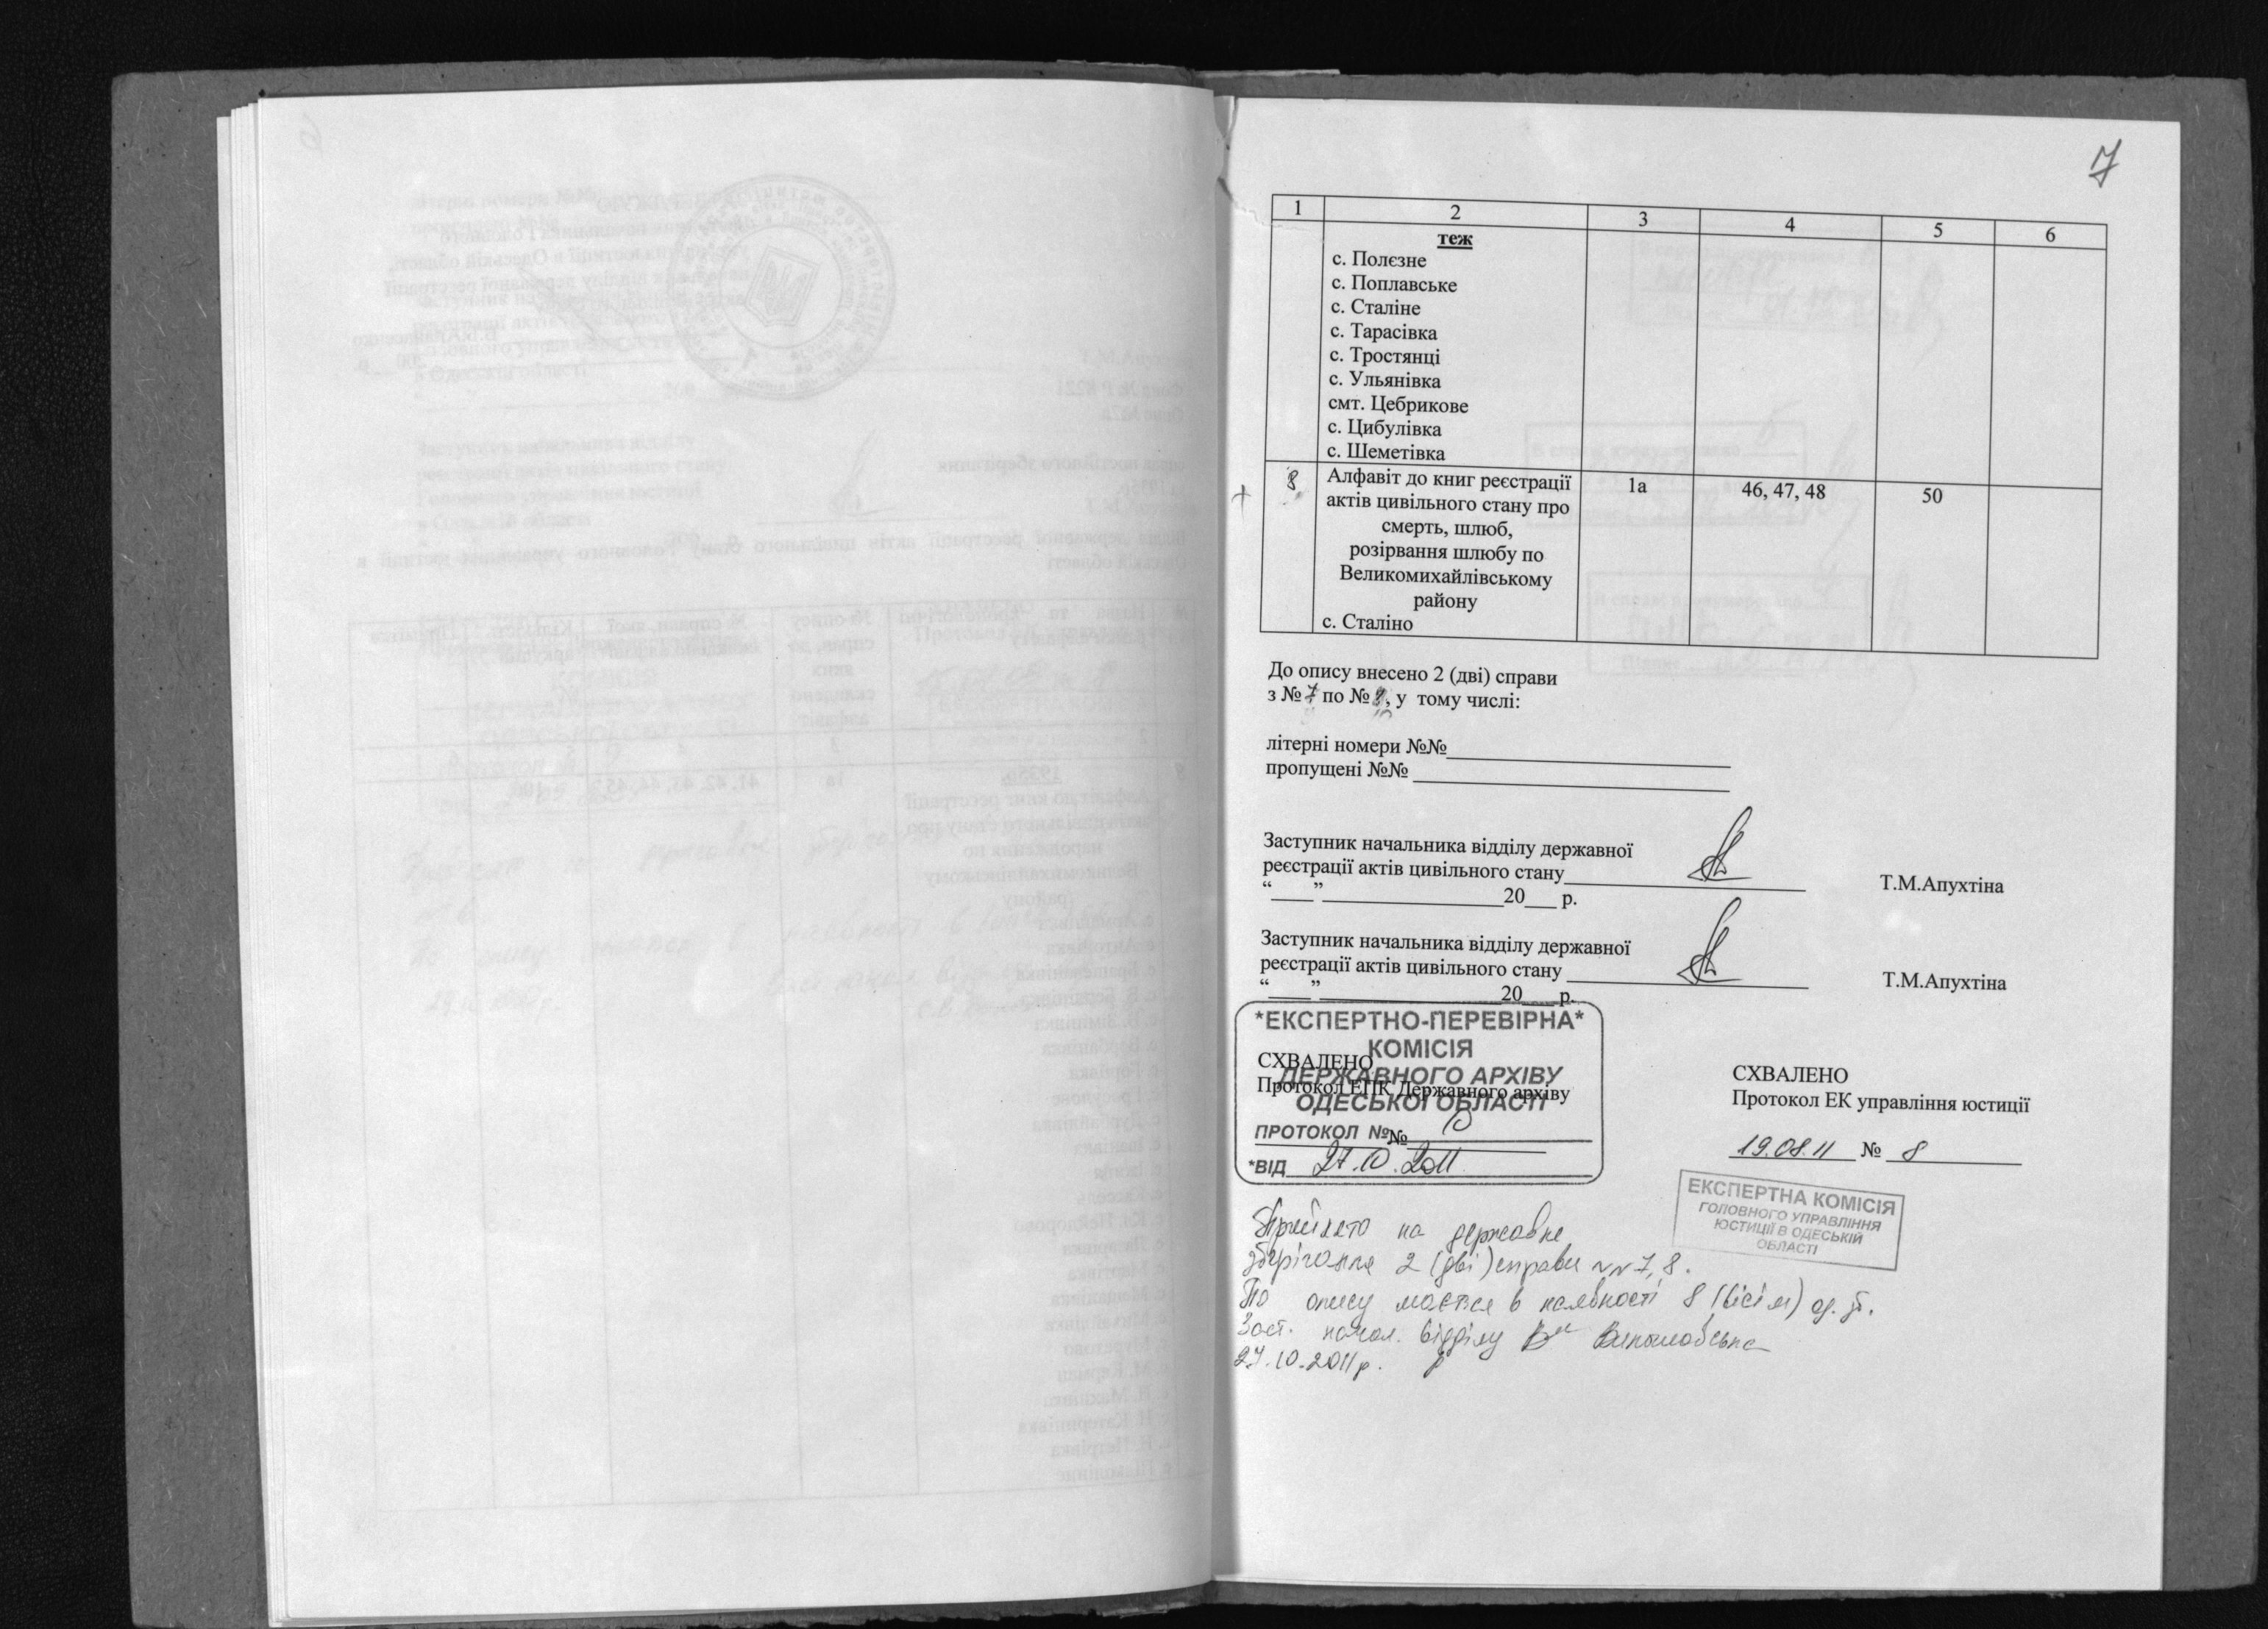 7
1 2 3 4 5 6
теж
с. Полєзне
с. Поплавське
с. Сталіне
с. Тарасівка
с. Тростянці
с. Ульянівка
смт. Цебрикове
с. Цибулівка
с. Шеметівка
8 Алфавіт до книг реєстрації 1а 46, 47, 48 50
актів цивільного стану про
смерть, шлюб,
розірвання шлюбу по
Великомихайлівському
району
с. Сталіно
До опису внесено 2 (дві) справи
з № 7 по № 8, у тому числі:
літерні номери №№
пропущені №№
Заступник начальника відділу державної
реєстрації актів цивільного стану Т.М.Апухтіна
“____” 20___ р.
Заступник начальника відділу державної
реєстрації актів цивільного стану Т.М.Апухтіна
“____” 20___ р.
*ЕКСПЕРТНО-ПЕРЕВІРНА*
КОМІСІЯ
ДЕРЖАВНОГО АРХІВУ
ОДЕСЬКОЇ ОБЛАСТІ
ПРОТОКОЛ № 10
*ВІД 27.10.2011
СХВАЛЕНО
Протокол ЕПК Державного архіву
№
СХВАЛЕНО
Протокол ЕК управління юстиції
19.08.11 № 8
ЕКСПЕРТНА КОМІСІЯ
ГОЛОВНОГО УПРАВЛІННЯ
ЮСТИЦІЇ В ОДЕСЬКІЙ
ОБЛАСТІ
Прийнято на державне
зберігання 2 (дві) справи №№ 7, 8.
По опису мається в наявності 8 (вісім) од. зб.
Заст. начал. відділу
27.10.2011 р.